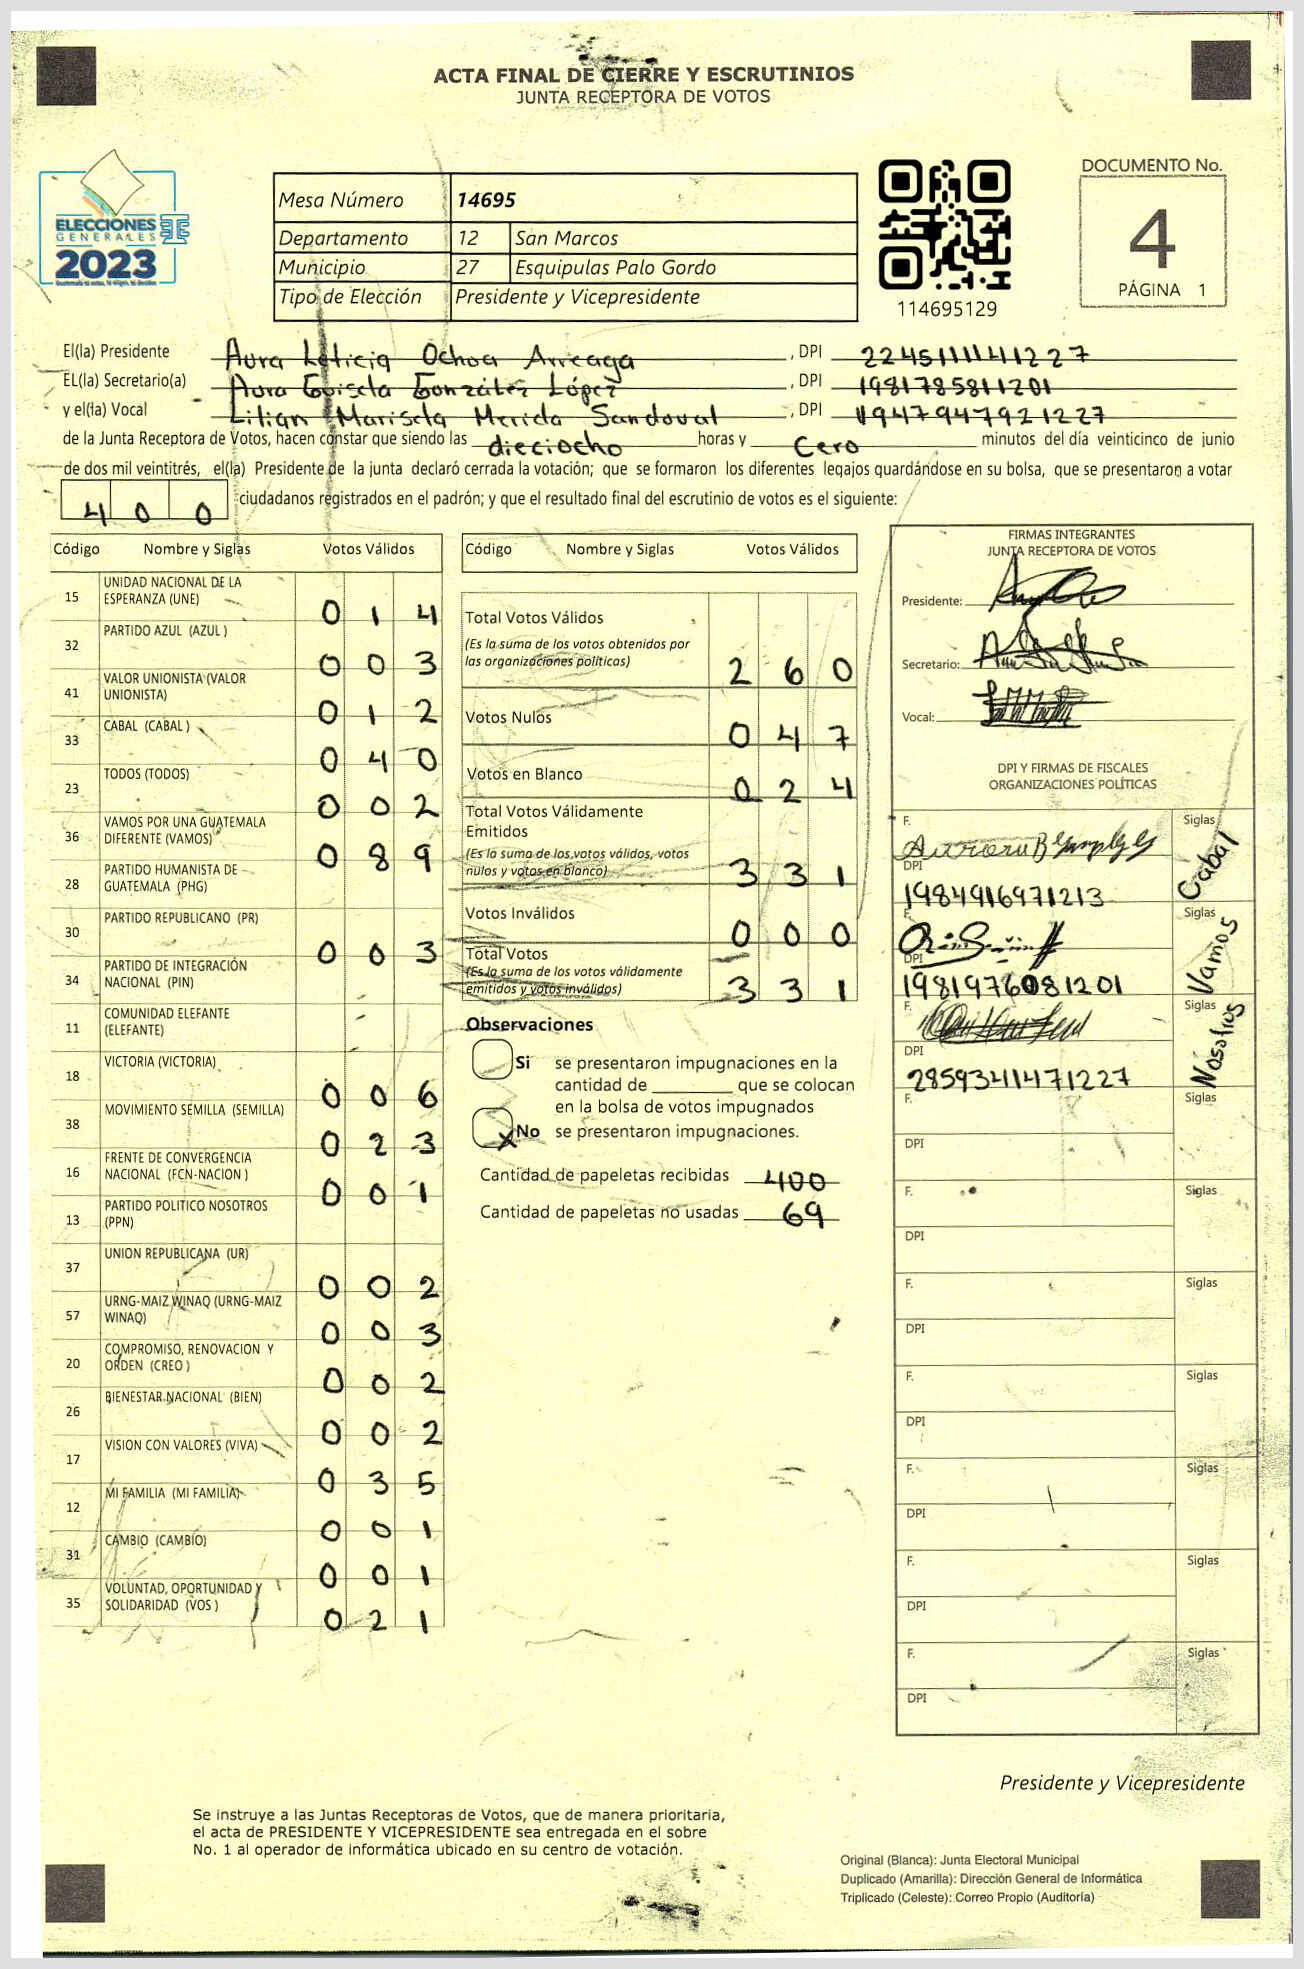 ACTA FINAL DE CIERRE Y ESCRUTINIOS
JUNTA RECEPTORA DE VOTOS
ELECCIONES
GENERALES
2023
Mesa Número 14695
Departamento 12 San Marcos
Municipio 27 Esquipulas Palo Gordo
Tipo de Elección Presidente y Vicepresidente
114695129
DOCUMENTO No.
4
PÁGINA 1
El(la) Presidente Aura Leticia Ochoa Arreaga , DPI 2245111141227
EL(la) Secretario(a) Aura Guisela Gonzáles López , DPI 1981785811201
y el(la) Vocal Lilian Marisela Merida Sandoval , DPI 1947947921227
de la Junta Receptora de Votos, hacen constar que siendo las dieciocho horas y Cero minutos del día veinticinco de junio
de dos mil veintitrés, el(la) Presidente de la junta declaró cerrada la votación; que se formaron los diferentes legajos quardándose en su bolsa, que se presentaron a votar
400 ciudadanos registrados en el padrón; y que el resultado final del escrutinio de votos es el siguiente:
Código Nombre y Siglas Votos Válidos
15 UNIDAD NACIONAL DE LA ESPERANZA (UNE) 014
32 PARTIDO AZUL (AZUL ) 003
41 VALOR UNIONISTA (VALOR UNIONISTA) 012
33 CABAL (CABAL ) 040
23 TODOS (TODOS) 002
36 VAMOS POR UNA GUATEMALA DIFERENTE (VAMOS) 089
28 PARTIDO HUMANISTA DE GUATEMALA (PHG)
30 PARTIDO REPUBLICANO (PR) 003
34 PARTIDO DE INTEGRACIÓN NACIONAL (PIN)
11 COMUNIDAD ELEFANTE (ELEFANTE)
18 VICTORIA (VICTORIA) 006
38 MOVIMIENTO SEMILLA (SEMILLA) 023
16 FRENTE DE CONVERGENCIA NACIONAL (FCN-NACION ) 001
13 PARTIDO POLITICO NOSOTROS (PPN)
37 UNION REPUBLICANA (UR) 002
57 URNG-MAIZ WINAQ (URNG-MAIZ WINAQ) 003
20 COMPROMISO, RENOVACION Y ORDEN (CREO ) 002
26 BIENESTAR NACIONAL (BIEN) 002
17 VISION CON VALORES (VIVA) 035
12 MI FAMILIA (MI FAMILIA) 001
31 CAMBIO (CAMBIO) 001
35 VOLUNTAD, OPORTUNIDAD Y SOLIDARIDAD (VOS ) 021
Código Nombre y Siglas Votos Válidos
Total Votos Válidos
(Es la suma de los votos obtenidos por
las organizaciones políticas) 260
Votos Nulos 047
Votos en Blanco 024
Total Votos Válidamente
Emitidos
(Es la suma de los votos válidos, votos
nulos y votos en blanco) 331
Votos Inválidos 000
Total Votos
(Es la suma de los votos válidamente
emitidos y votos inválidos) 331
Observaciones
Si se presentaron impugnaciones en la
cantidad de ________ que se colocan
en la bolsa de votos impugnados
X No se presentaron impugnaciones.
Cantidad de papeletas recibidas 400
Cantidad de papeletas no usadas 69
FIRMAS INTEGRANTES
JUNTA RECEPTORA DE VOTOS
Presidente:
Secretario:
Vocal:
DPI Y FIRMAS DE FISCALES
ORGANIZACIONES POLÍTICAS
F. Siglas Cabal
DPI 1984916971213
F. Siglas Vamos
DPI 1981976081201
F. Siglas Nosotros
DPI 2859341471227
F. Siglas
DPI
F. Siglas
DPI
F. Siglas
DPI
F. Siglas
DPI
F. Siglas
DPI
F. Siglas
DPI
F. Siglas
DPI
Presidente y Vicepresidente
Se instruye a las Juntas Receptoras de Votos, que de manera prioritaria,
el acta de PRESIDENTE Y VICEPRESIDENTE sea entregada en el sobre
No. 1 al operador de informática ubicado en su centro de votación.
Original (Blanca): Junta Electoral Municipal
Duplicado (Amarilla): Dirección General de Informática
Triplicado (Celeste): Correo Propio (Auditoría)